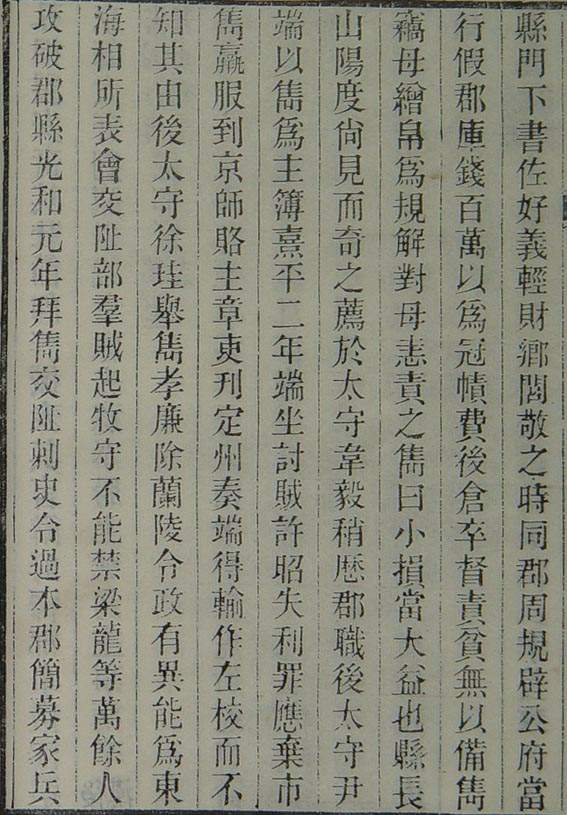 縣門下書佐好義輕財鄉閭敬之時同郡周規辟公府當
行假郡庫錢百萬以爲冠幘費後倉卒督責貧無以備雋
竊母繒帛爲規解對母恚責之雋曰小損當大益也縣長
山陽度尙見而奇之薦於太守韋毅稍歷郡職後太守尹
端以雋爲主簿熹平二年端坐討賊許昭失利罪應棄市
雋羸服到京師賂主章吏刋定州奏端得輸作左校而不
知其由後太守徐珪舉雋孝廉除蘭陵令政有異能爲東
海相所表會交阯部羣賊起牧守不能禁梁龍等萬餘人
攻破郡縣光和元年拜雋交阯刺史令過本郡簡募家兵